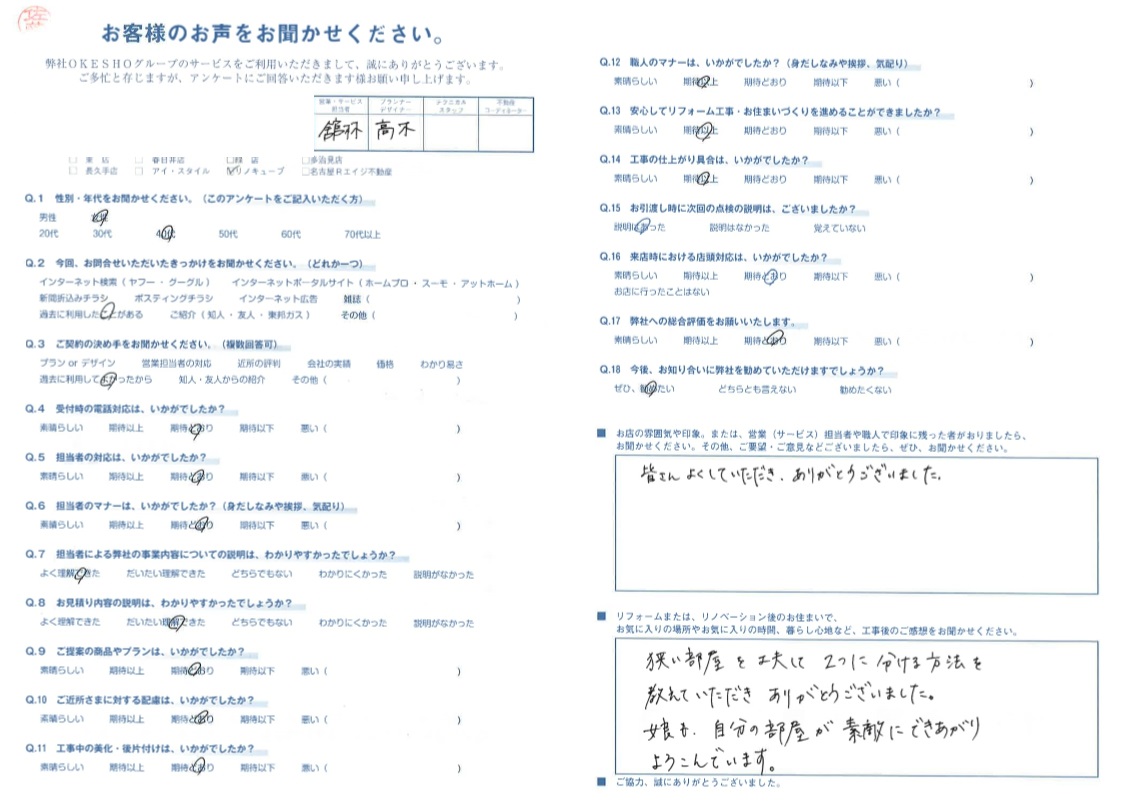 お客様のお声をお聞かせください。
弊社OKESHOグループのサービスをご利用いただきまして、誠にありがとうございます。
ご多忙と存じますが、アンケートにご回答いただきます様お願い申し上げます。
営業・サービス担当者 プランナーデザイナー テクニカルスタッフ 不動産コーディネーター
舘林 高木
□ 東 店 □ 春日井店 □緑 店 □多治見店
□ 長久手店 □ アイ・スタイル ☑リノキューブ □名古屋Rエイジ不動産
Q.1 性別・年代をお聞かせください。（このアンケートをご記入いただく方）
男性 女性
20代 30代 40代 50代 60代 70代以上
Q.2 今回、お問合せいただいたきっかけをお聞かせください。（どれか一つ）
インターネット検索（ ヤフー ・ グーグル ） インターネットポータルサイト（ ホームプロ ・ スーモ ・ アットホーム ）
新聞折込みチラシ ポスティングチラシ インターネット広告 雑誌（ ）
過去に利用したことがある ご紹介（ 知人 ・ 友人 ・ 東邦ガス ） その他（ ）
Q.3 ご契約の決め手をお聞かせください。（複数回答可）
プラン or デザイン 営業担当者の対応 近所の評判 会社の実績 価格 わかり易さ
過去に利用してよかったから 知人・友人からの紹介 その他（ ）
Q.4 受付時の電話対応は、いかがでしたか？
素晴らしい 期待以上 期待どおり 期待以下 悪い（ ）
Q.5 担当者の対応は、いかがでしたか？
素晴らしい 期待以上 期待どおり 期待以下 悪い（ ）
Q.6 担当者のマナーは、いかがでしたか？（身だしなみや挨拶、気配り）
素晴らしい 期待以上 期待どおり 期待以下 悪い（ ）
Q.7 担当者による弊社の事業内容についての説明は、わかりやすかったでしょうか？
よく理解できた だいたい理解できた どちらでもない わかりにくかった 説明がなかった
Q.8 お見積り内容の説明は、わかりやすかったでしょうか？
よく理解できた だいたい理解できた どちらでもない わかりにくかった 説明がなかった
Q.9 ご提案の商品やプランは、いかがでしたか？
素晴らしい 期待以上 期待どおり 期待以下 悪い（ ）
Q.10 ご近所さまに対する配慮は、いかがでしたか？
素晴らしい 期待以上 期待どおり 期待以下 悪い（ ）
Q.11 工事中の美化・後片付けは、いかがでしたか？
素晴らしい 期待以上 期待どおり 期待以下 悪い（ ）
Q.12 職人のマナーは、いかがでしたか？（身だしなみや挨拶、気配り）
素晴らしい 期待以上 期待どおり 期待以下 悪い（ ）
Q.13 安心してリフォーム工事・お住まいづくりを進めることができましたか？
素晴らしい 期待以上 期待どおり 期待以下 悪い（ ）
Q.14 工事の仕上がり具合は、いかがでしたか？
素晴らしい 期待以上 期待どおり 期待以下 悪い（ ）
Q.15 お引渡し時に次回の点検の説明は、ございましたか？
説明はあった 説明はなかった 覚えていない
Q.16 来店時における店頭対応は、いかがでしたか？
素晴らしい 期待以上 期待どおり 期待以下 悪い（ ）
お店に行ったことはない
Q.17 弊社への総合評価をお願いいたします。
素晴らしい 期待以上 期待どおり 期待以下 悪い（ ）
Q.18 今後、お知り合いに弊社を勧めていただけますでしょうか？
ぜひ、勧めたい どちらとも言えない 勧めたくない
■ お店の雰囲気や印象。または、営業（サービス）担当者や職人で印象に残った者がおりましたら、
お聞かせください。その他、ご要望・ご意見などございましたら、ぜひ、お聞かせください。
皆さん よくしていただき、ありがとうございました。
■ リフォームまたは、リノベーション後のお住まいで、
お気に入りの場所やお気に入りの時間、暮らし心地など、工事後のご感想をお聞かせください。
狭い部屋を工夫して 2つに分ける方法を
教えていただき ありがとうございました。
娘も、自分の部屋が素敵にできあがり
よろこんでいます。
■ ご協力、誠にありがとうございました。